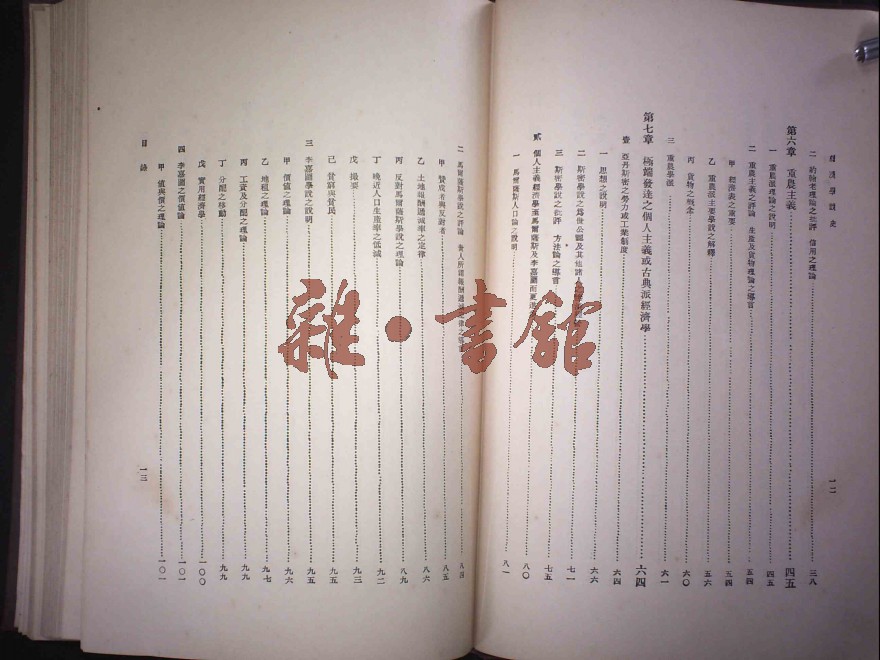 經濟學說史
二 約翰老理論之批評 信用之理論 三八
第六章 重農主義 四五
一 重農派理論之說明 四五
二 重農主義之評論 生產及貨物理論之導言 五四
甲 經濟表之重要 五四
乙 重農派主要學說之解釋 五六
丙 貨物之概念 六〇
三 重農學派 六一
第七章 極端發達之個人主義或古典派經濟學 六四
壹 亞丹斯密之勞力或工業制度 六四
一 思想之說明 六六
二 斯密學說之為世公認及其他諸人之 七一
三 斯密學說之批評 方法論之導言 七五
貳 個人主義經濟學至馬爾薩斯及李嘉圖而更進 八〇
一 馬爾薩斯人口論之說明 八一
一二
二 馬爾薩斯學說之評論 八四
甲 贊成者與反對者 八五
乙 土地報酬遞減率之定律 八六
丙 反對馬爾薩斯學說之理論 八九
丁 晚近人口生產率之低減 九二
戊 撮要 九三
己 貧窮與貧民 九五
三 李嘉圖學說之說明 九五
甲 價值之理論 九六
乙 地租之理論 九七
丙 工資及分配之理論 九九
丁 分配之移動 九九
戊 實用經濟學 一〇〇
四 李嘉圖之價值論 一〇一
甲 值與價之理論 一〇一
目錄
一三
雜·書館